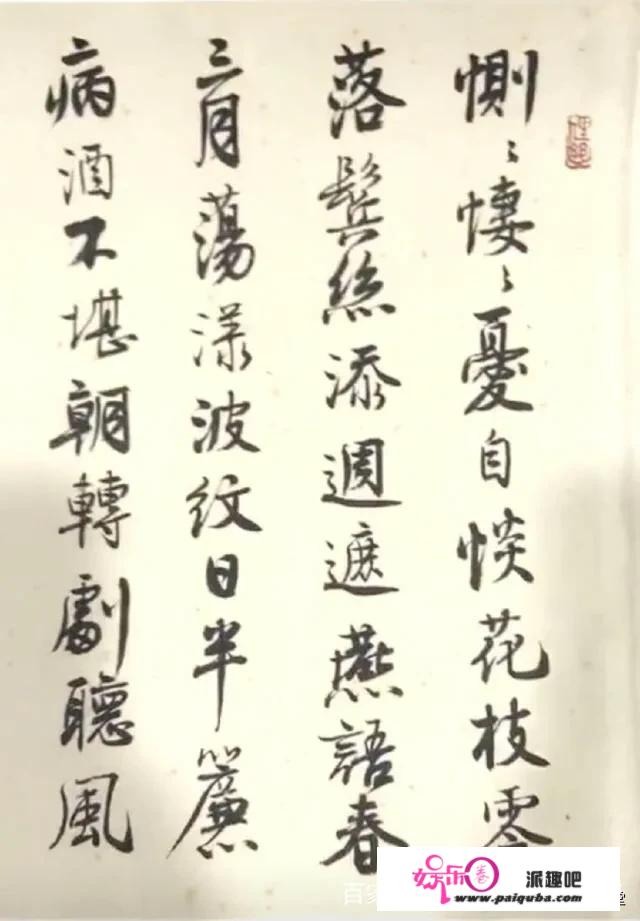 惻〻悽〻憂自惔花枝零
落鬢絲添週遮燕語春
三月蕩漾波紋日半簾
病酒不堪朝轉劇聽風
娱乐卷
派趣吧
www.paiquba.com